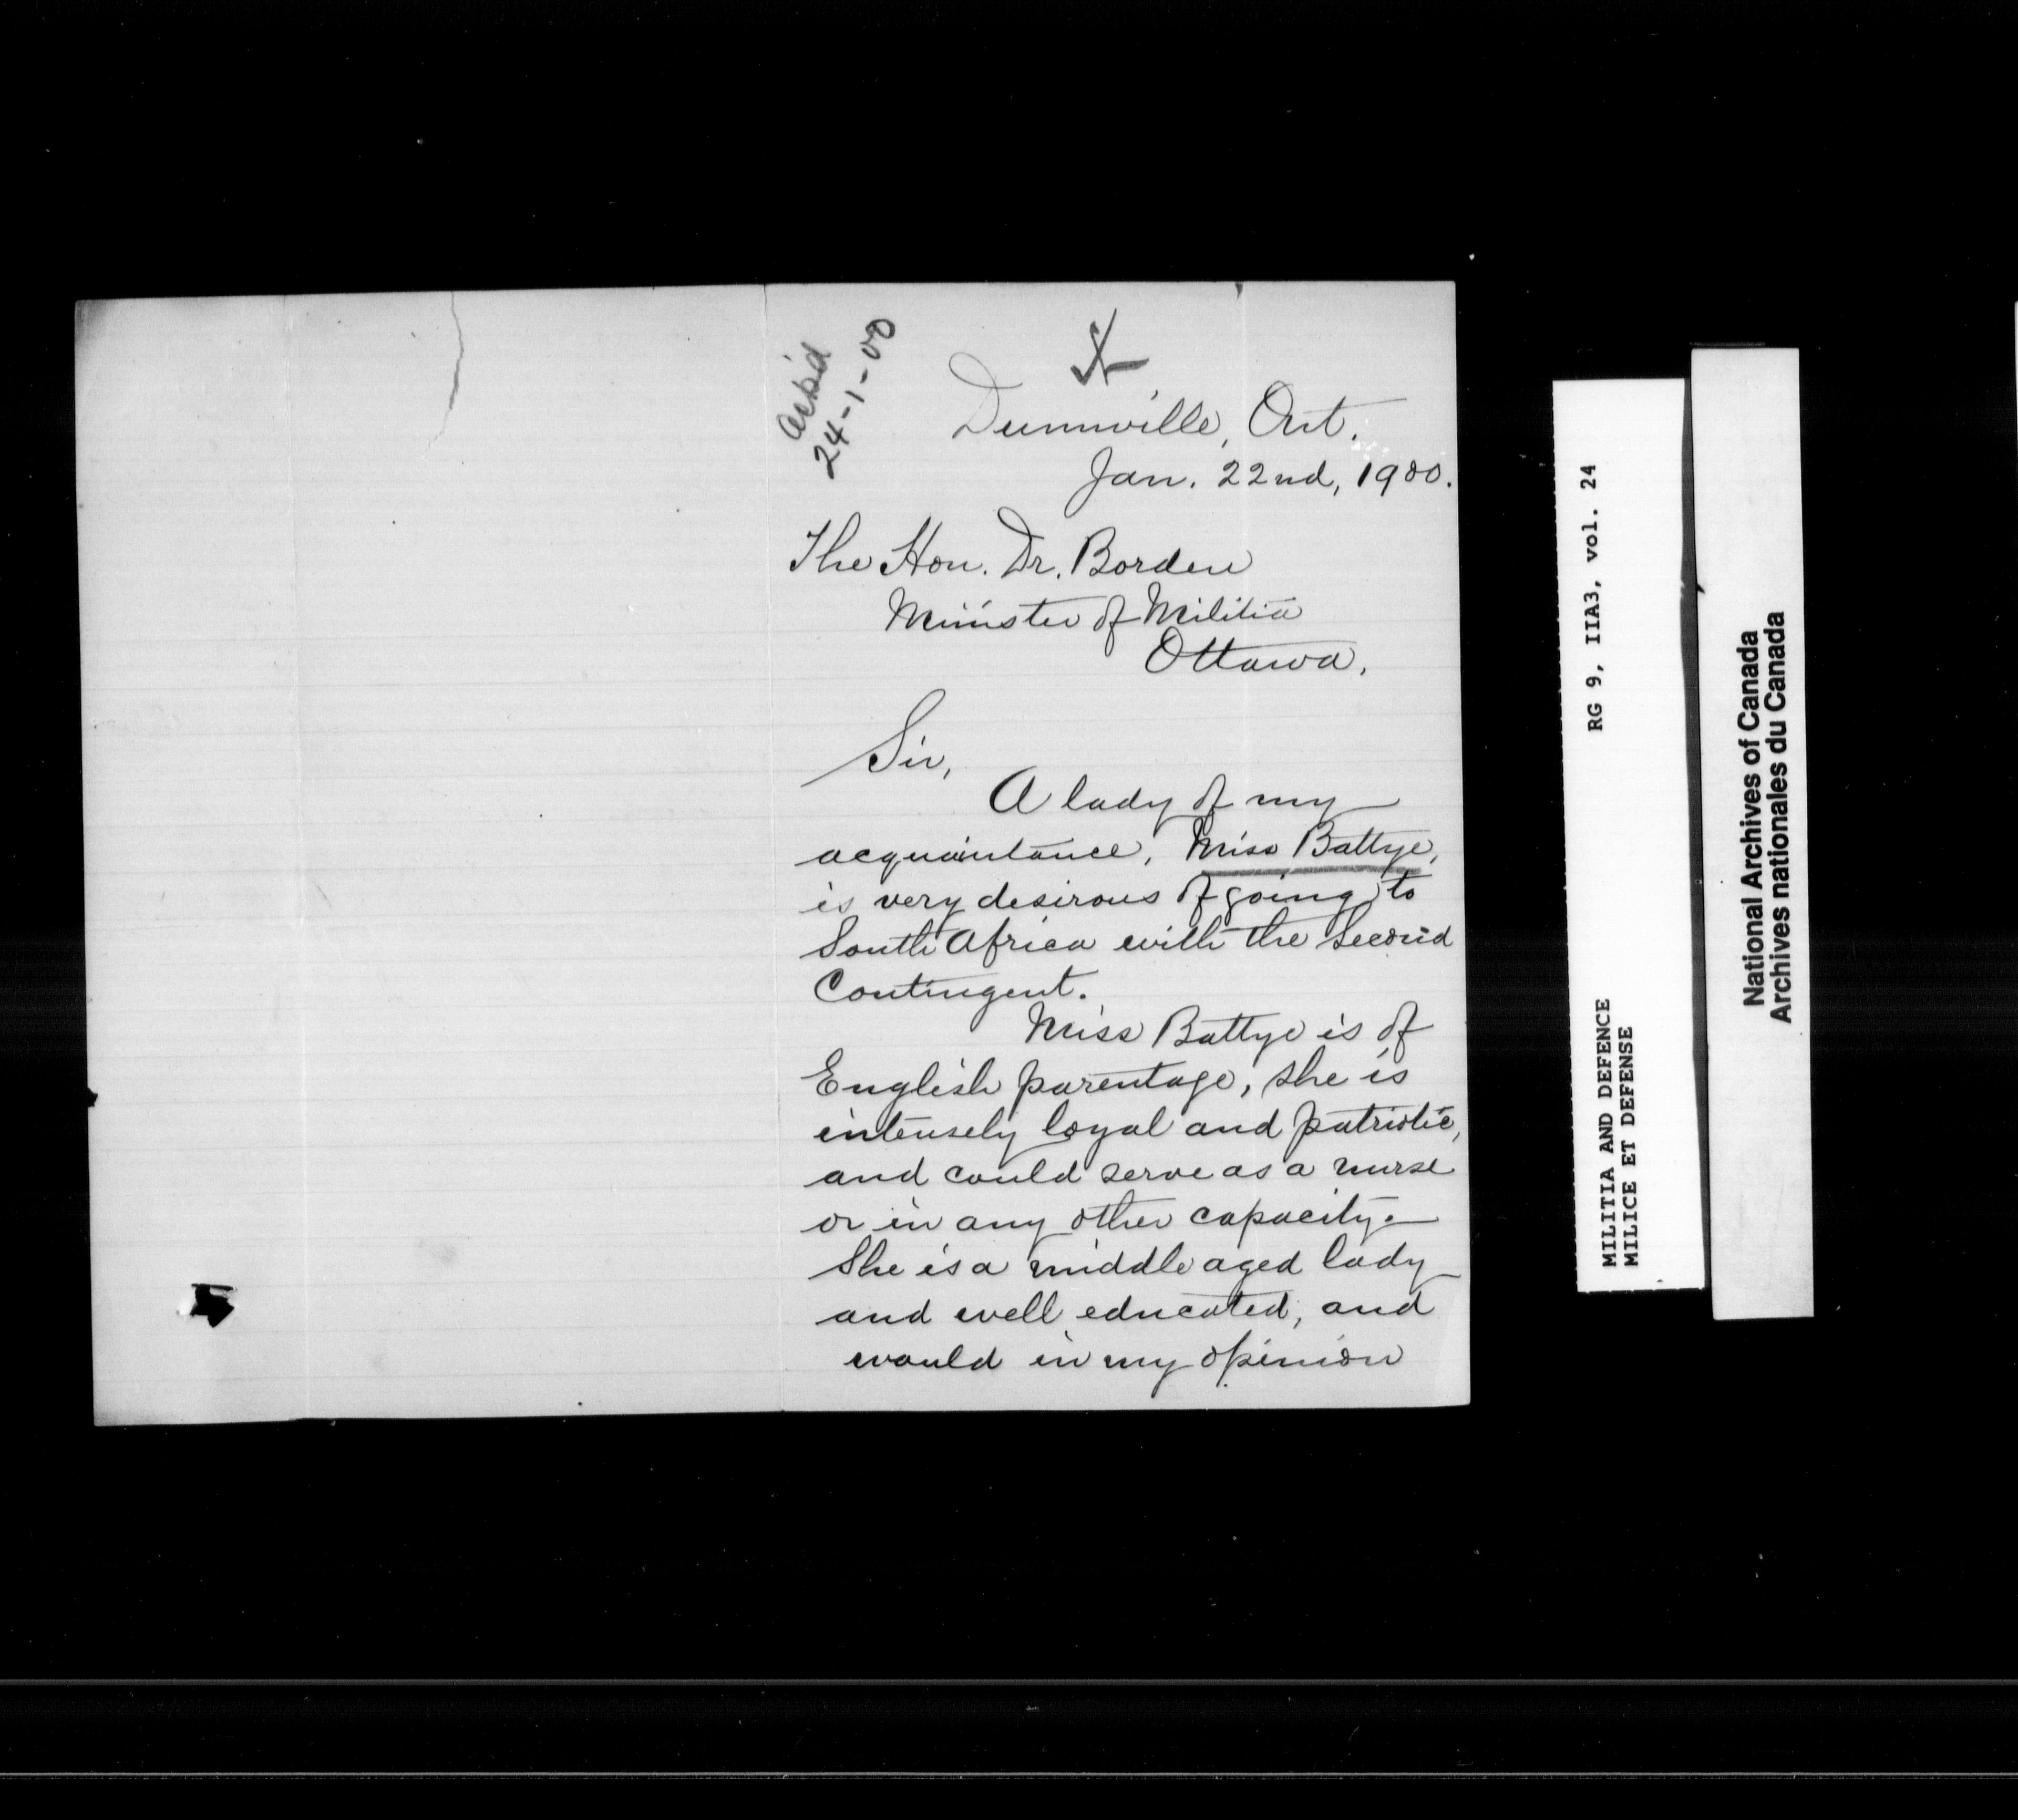 Ack'd
24-1-00
X
Dunnville, Ont.
Jan. 22nd, 1900.
The Hon. Dr. Borden
Minister of Militia
Ottawa,
Sir,
A lady of my
acquaintance, Miss Battye,
is very desirous of going to
South Africa with the Second
Contingent.
Miss Battye is of
English parentage, she is
intensely loyal and patriotic,
and could serve as a nurse
or in any other capacity.
She is a middle aged lady
and well educated, and
would in my opinion
MILITIA AND DEFENCE RG 9, IIA3, vol. 24
MILICE ET DEFENSE
National Archives of Canada
Archives nationales du Canada